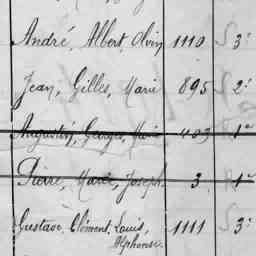 André, Albert, Olvin 1110 S 3e
Jean, Gilles, Marie 895 S 2e
Augustin, Georges, Marie 403 1e
Pierre, Marie, Joseph 3 1e
Gustave, Clément, Louis, 1111 S 3e
Alphonse